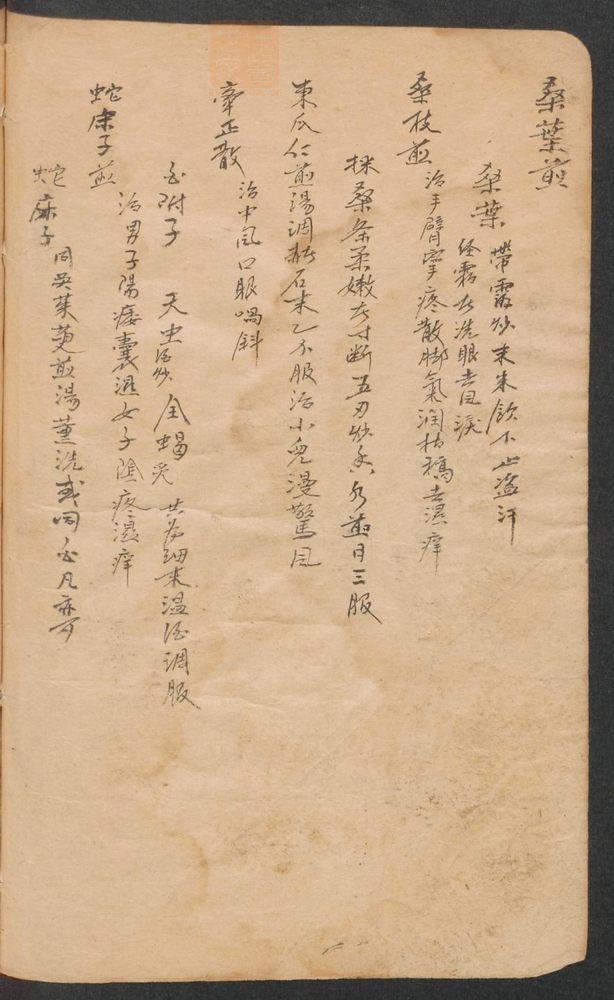 桑葉煎
桑葉 帶露炒末米飲下止盜汗
經霜者洗眼去風淚
桑枝煎 治手臂挛疼散脚氣潤枯槁去濕痒
採桑条柔嫩者寸断五刃炒香水煎日三服
東瓜仁煎湯調赭石末乙不服治小兒漫驚風
牽正散 治中風口眼喎斜
白附子 天虫酒炒 全蝎炙 共为細末温酒調服
蛇床子煎 治男子陽痿囊濕女子陰疼濕痒
蛇床子 同吳茱萸煎湯薰洗或同白凡亦可